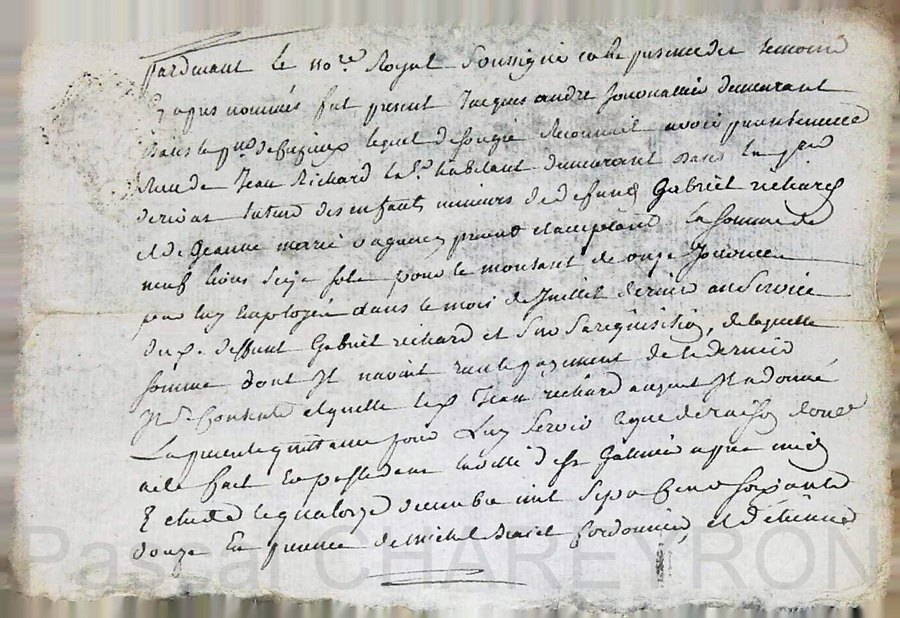 pardevant le no.re Royal soussigné et en presence des temoins
Cy apres nommés fut present Jacques andre Journallier demeurant
dans le lequel de son gré Reconnoit avoir presentement
Receu de Jean Richard habitant demeurant dans la
tuteur des enfants mineurs de defunt Gabriel richard
et de Jeanne marie present et acceptant La somme de
neuf livres seize sols pour le montant de onze Journees
par luy Employées dans le mois de Juillet dernier au service
dud. deffunt Gabriel richard et a sa requisition, de laquelle
somme dont Il navoit eu le payement de ce dernier
Il Contente et quitte led. Jean richard auquel Il a donné
La presente quittance pour Luy servir a ce que de raison dont
acte fait et passé dans la ville de st Galmier apres midy
Le quatorze decembre mil sept Cent soixante
douze En presence de michel Cordonnier, et d'étienne
Pascal CHAREYRON